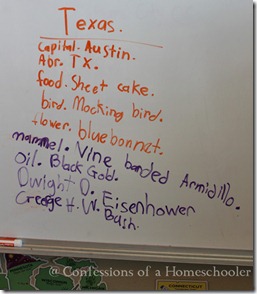 Texas.
Capital. Austin.
Abr. TX.
food. Sheet cake.
bird. Mocking bird.
flower. bluebonnet.
mammel. Vine banded Armidillo.
Oil. Black God.
Dwight D. Eisenhower
George H. W. Bush.
@ Confessions of a Homeschooler
CONNECTICUT